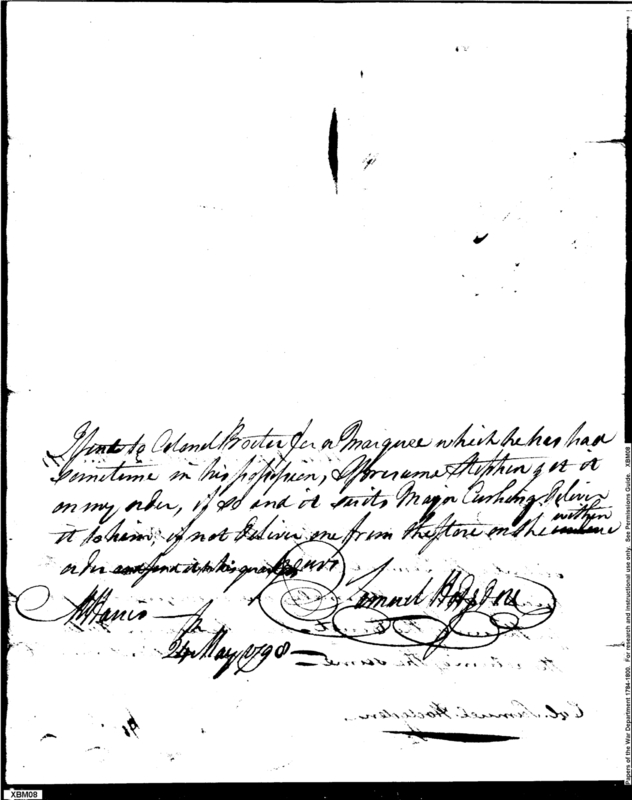 Send to Colonel Procter for a Marquee which he has had
sometime in his possession, I presume Stephen got it
on my order, if so and it suits Major Cushing Deliver
it to him, if not deliver one from the store on the within
order and send it to his quarters
Samuel Hodgdon
Harris
24 May 1798
Col. Samuel Hodgdon
XBM08
Papers of the War Department 1784-1800. For research and instructional use only. See Permissions Guide. XBM08